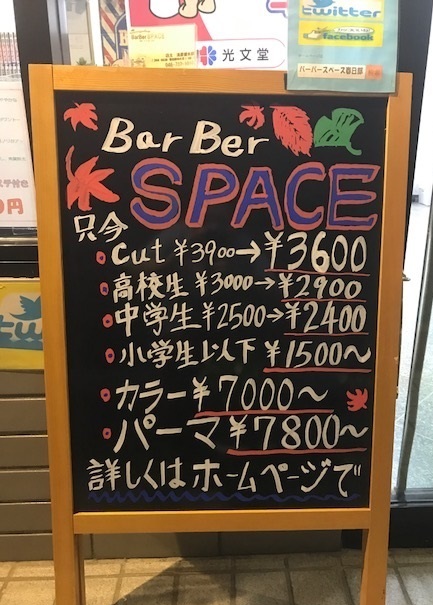 twitter
facebook
バーバースペース春日部
BarBer SPACE
光文堂
Bar Ber
SPACE
只今
cut ¥3900→¥3600
高校生 ¥3000→¥2900
中学生 ¥2500→¥2400
小学生以下 ¥1500〜
カラー ¥7000〜
パーマ ¥7800〜
詳しくはホームページで